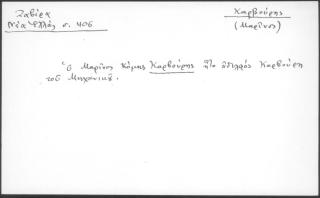 Ζαβίρα
Νέα Ἑλλάς σ. 406
Καρβούρης
(Μαρῖνος)
Ὁ Μαρῖνος Κόμης Καρβούρης ἦτο ἀδελφὸς Καρβούρη
τοῦ Μηχανικοῦ.